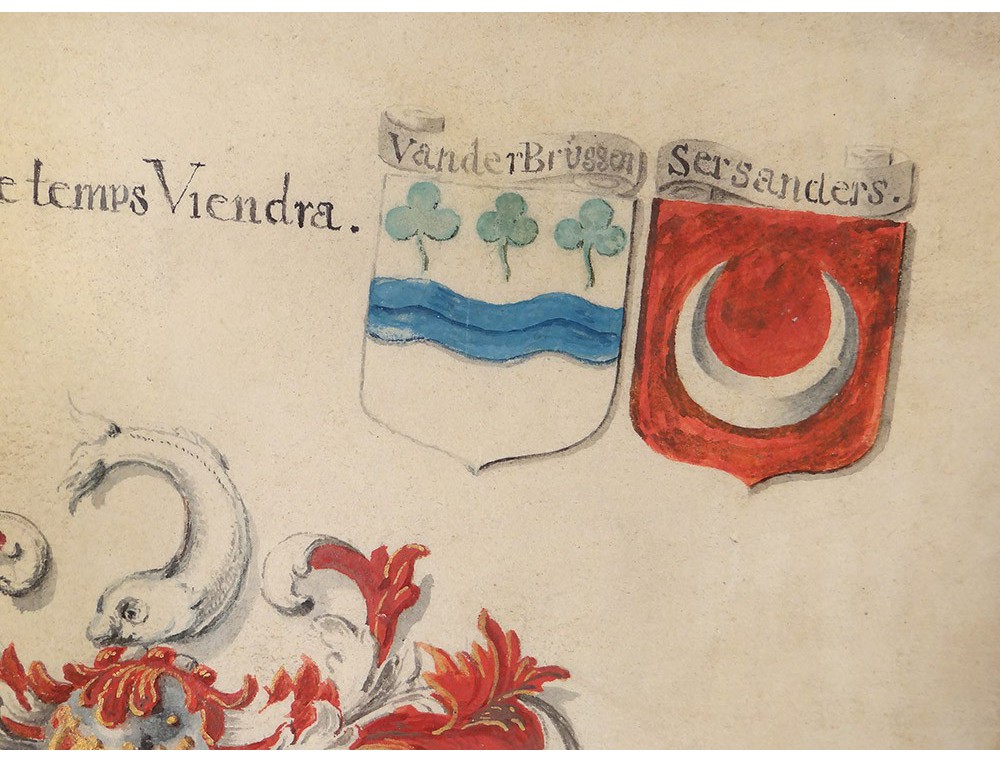 e temps Viendra.
VanderBrüggen
Sersanders.